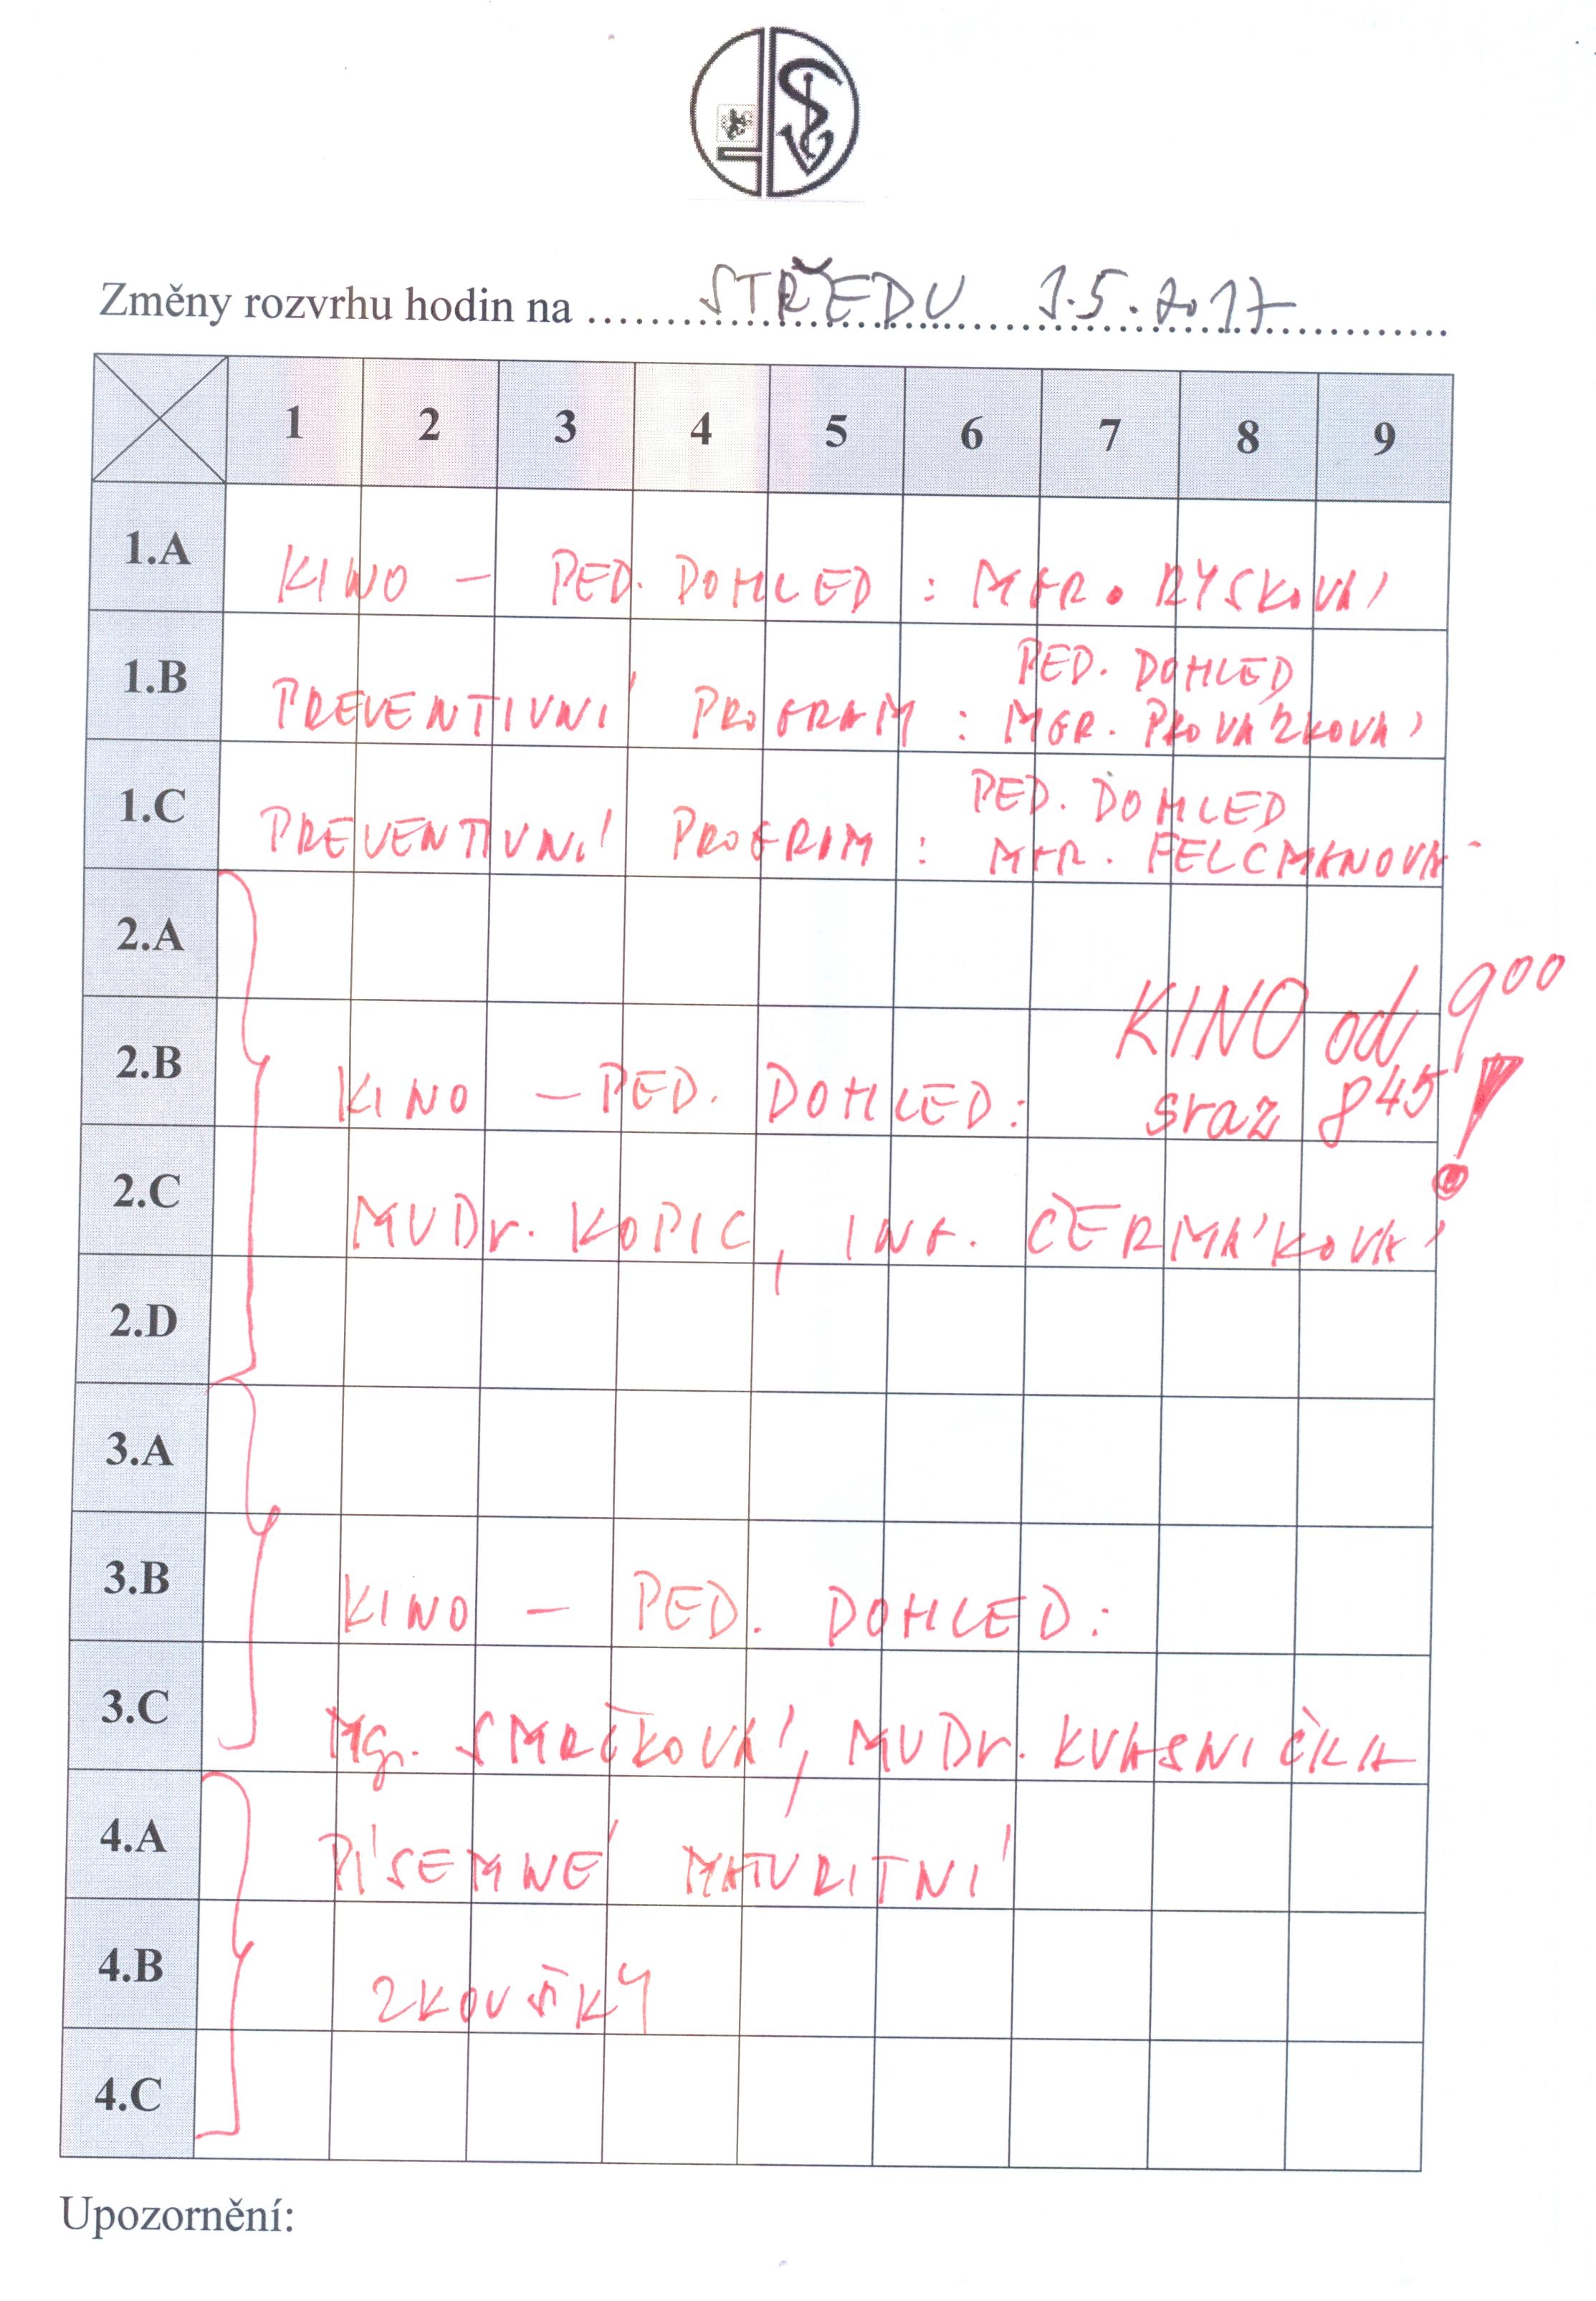 Změny rozvrhu hodin na STŘEDU 3.5.2017
1 2 3 4 5 6 7 8 9
1.A KINO – PED. DOHLED : MGR. RYSKOVÁ
PED. DOHLED
1.B PREVENTIVNÍ PROGRAM : MGR. PROVÁZKOVÁ
PED. DOHLED
1.C PREVENTIVNÍ PROGRAM : MGR. FELCMANOVÁ
2.A
KINO od 9⁰⁰
2.B KINO – PED. DOHLED: sraz 8⁴⁵ !
2.C MUDr. KOPIC, ING. ČERMÁKOVÁ
2.D
3.A
3.B KINO – PED. DOHLED:
3.C Mgr. SMRČKOVÁ, MUDr. KVASNIČKA
4.A PÍSEMNÉ MATURITNÍ
4.B ZKOUŠKY
4.C
Upozornění: